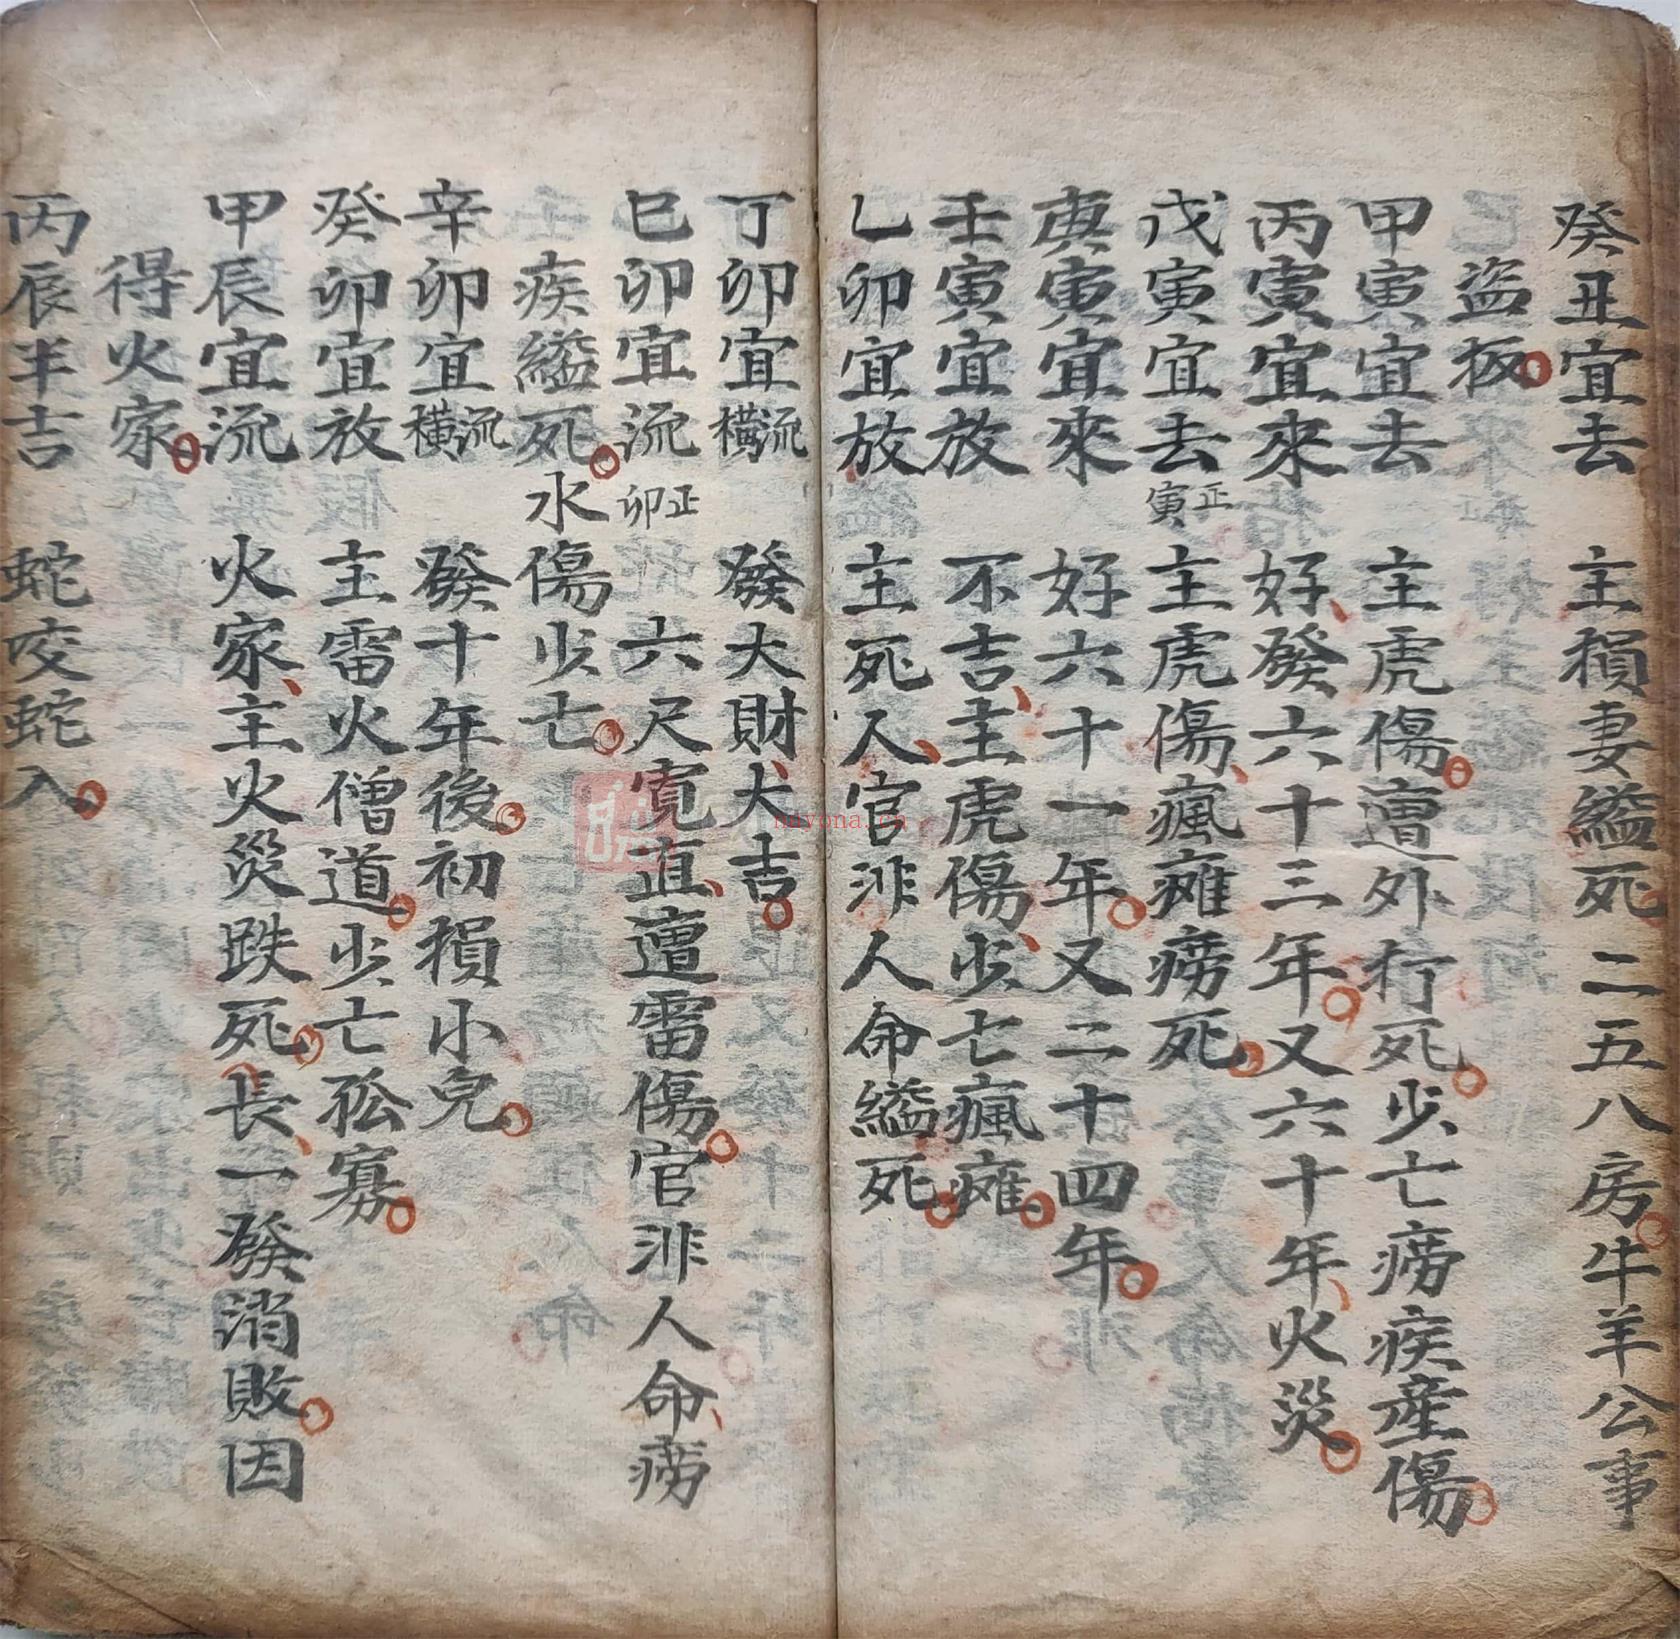 癸丑宜去　主損妻縊死二五八房牛羊公事
盜扳
甲寅宜去　主虎傷遭外行死少亡癆疾産傷
丙寅宜來　好發六十三年又六十年火災
戊寅宜去正寅主虎傷瘋癱癆死
庚寅宜來　好六十一年又二十四年
壬寅宜放　不吉主虎傷少亡瘋癱
乙卯宜放　主死人官非人命縊死
丁卯宜流橫　發大財犬吉
巳卯宜流正卯　六尺寬直遭雷傷官非人命癆
疾縊死水傷少亡
辛卯宜流橫　發十年後初損小兒
癸卯宜放　主雷火僧道少亡孤寡
甲辰宜流　火家主火災跌死長一發消敗因
得火家
丙辰半吉　蛇咬蛇入
nayona.ca